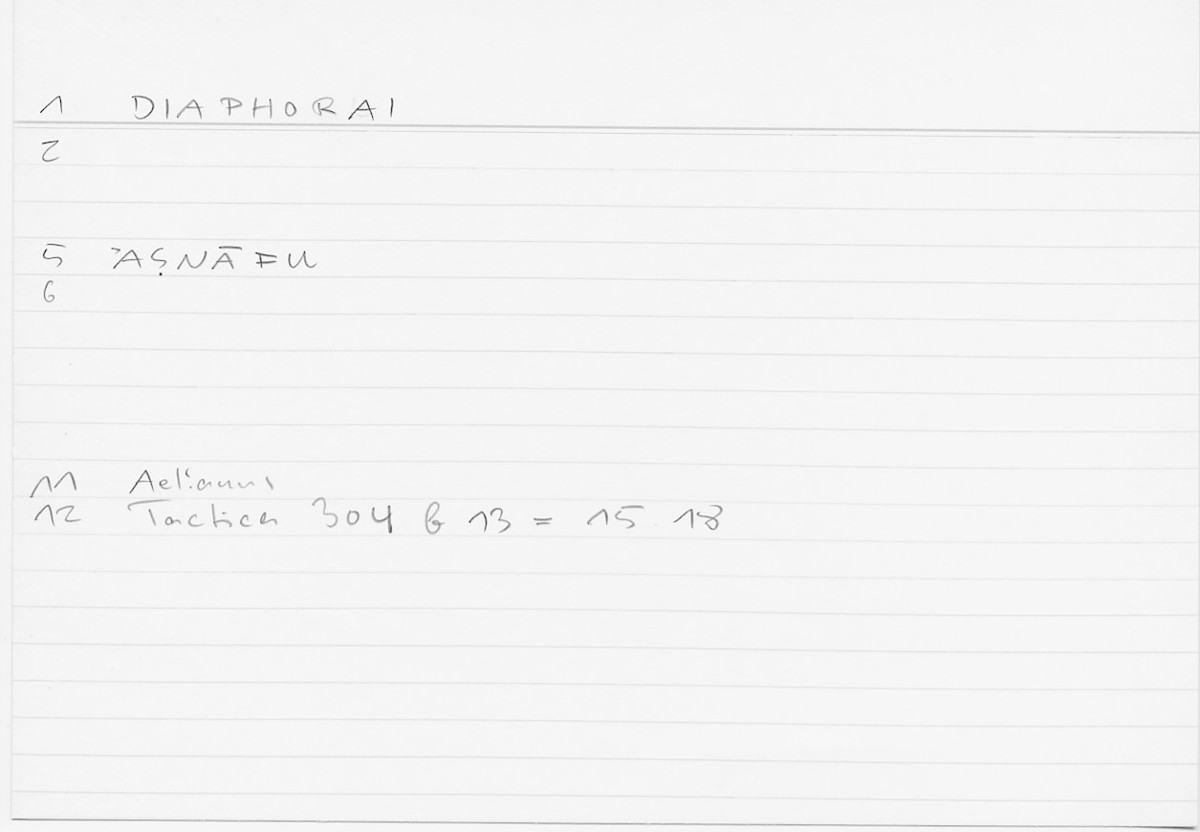 1 DIAPHORAI
2
5 ʾAṢNĀFU
6
11 Aelianus
12 Tactica 304 b 13 = 15 18